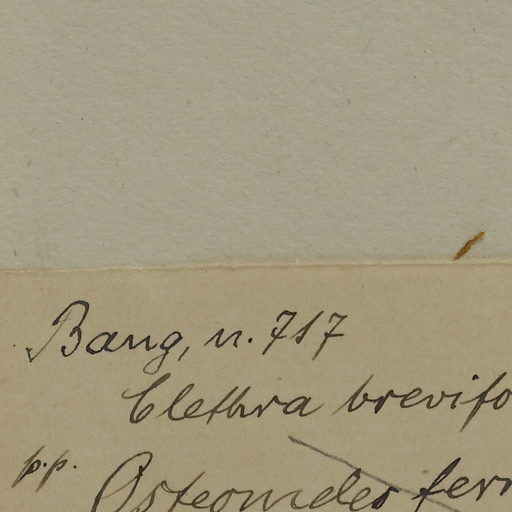 Bang, n. 717
Clethra brevifo
p.p. Osteomeles ferr